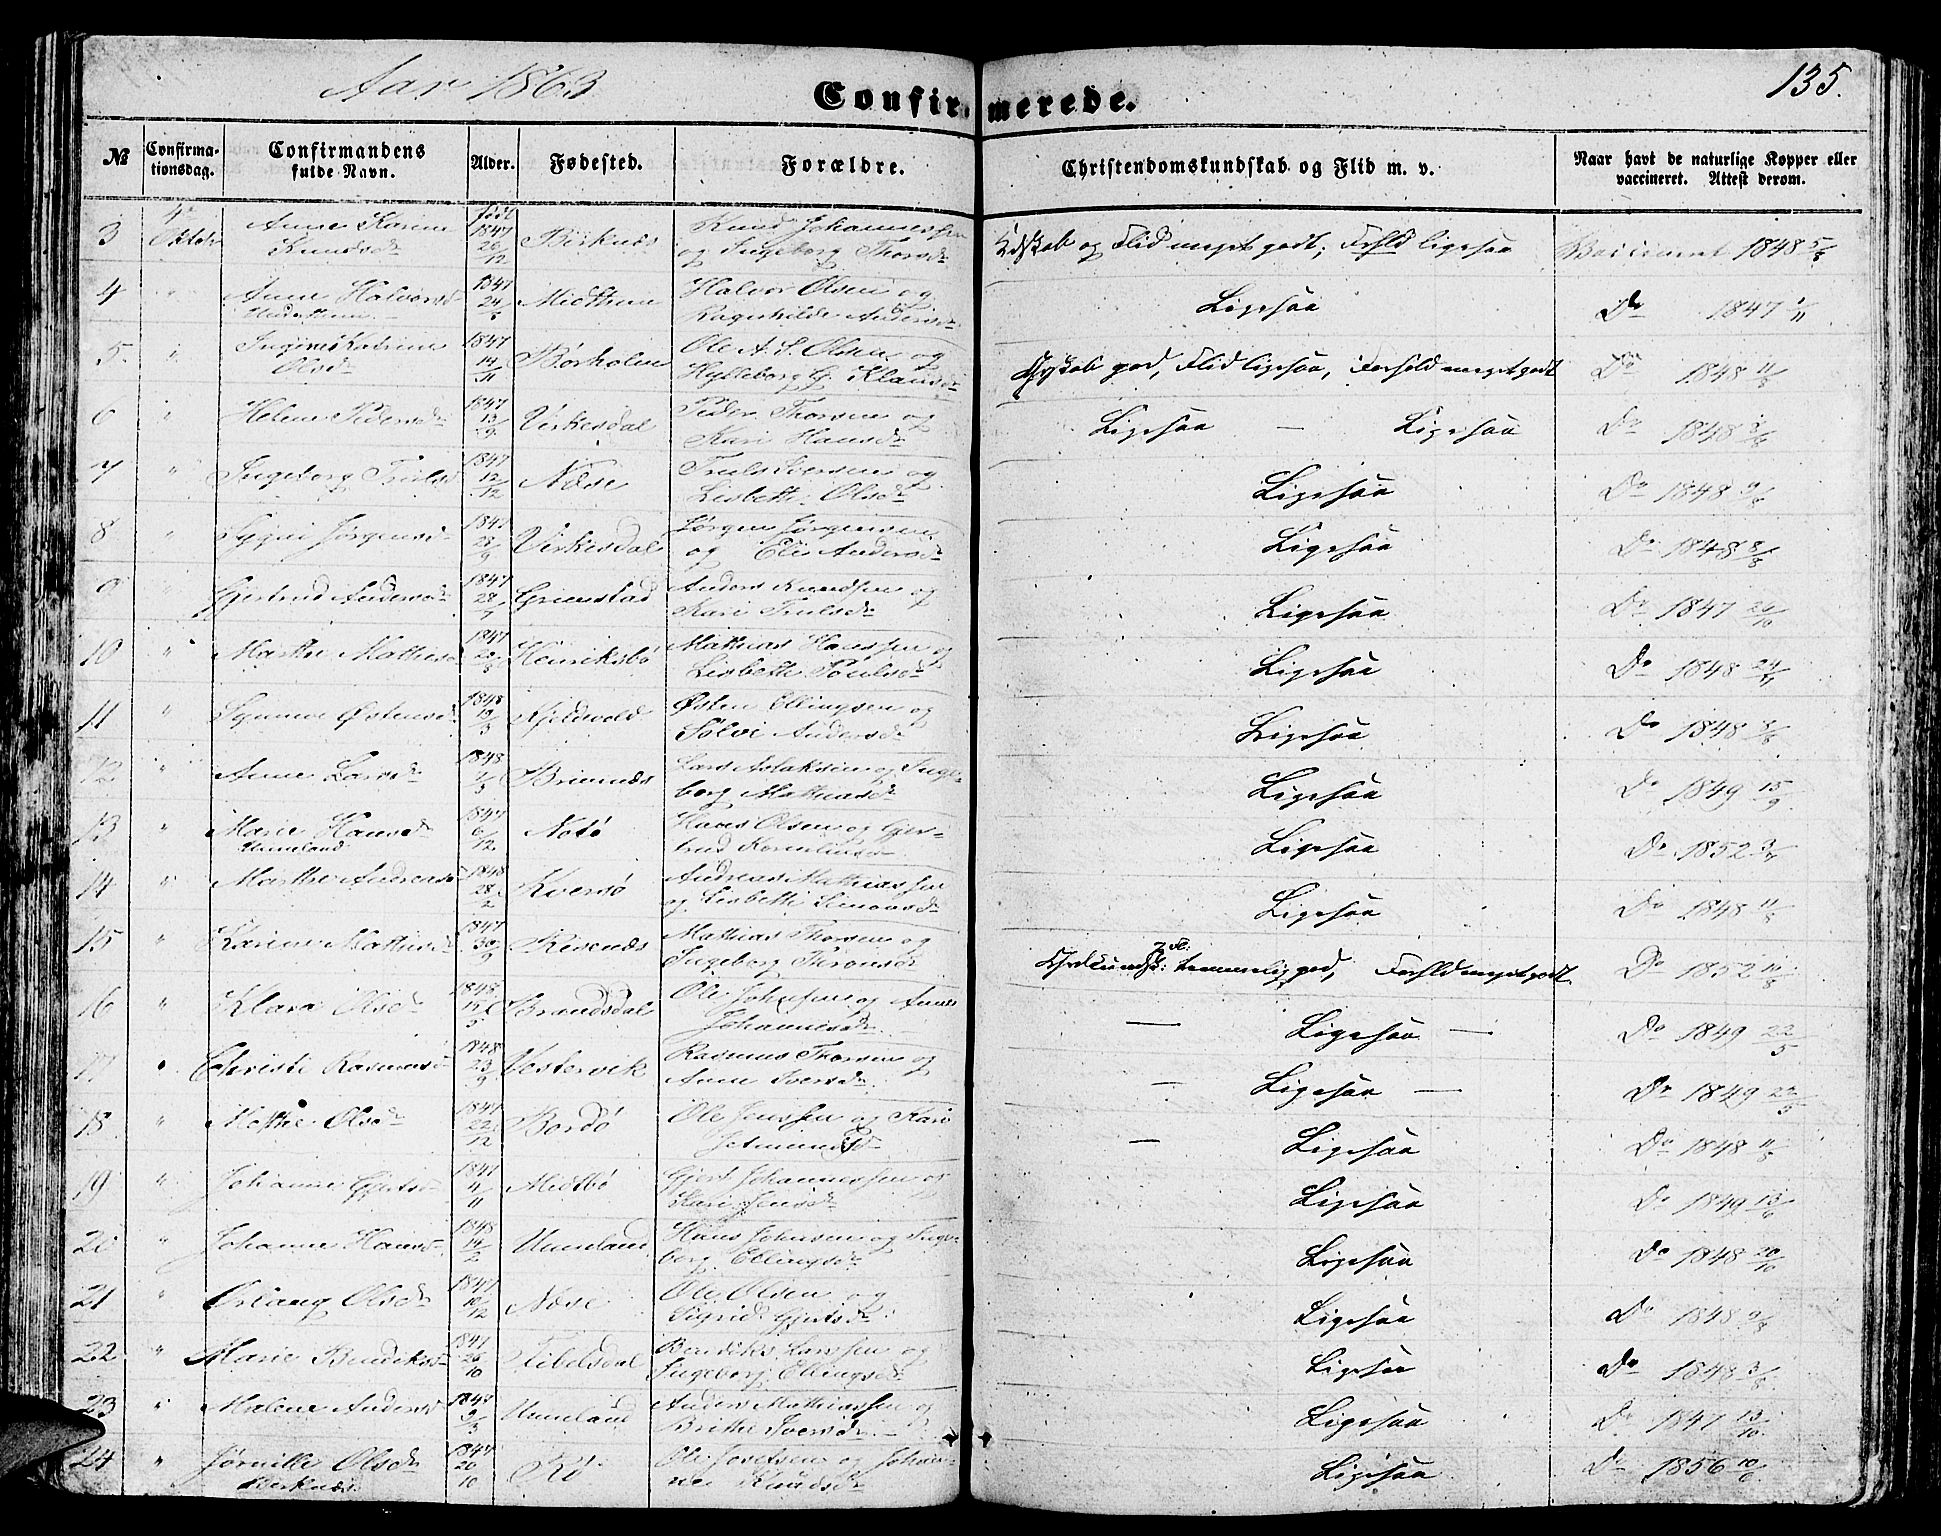 Aar 1863
Confirmerede.
135.
№ Confirmationsdag. Confirmandens fulde Navn. Alder. Fødested. Forældre. Christendomskundskab og Flid m. v. Naar havt de naturlige Kopper eller vaccineret. Attest derom.
3 4de Oktobr Anne Karine Knudsdr født 1847 26/12 Birknæs Knud Johannessen og Ingeborg Thorsdr Kdskab og Flid meget godt; Forhld ligesaa Vaccineret 1848 5/8
4 " Anne Halvorsd 1847 24/5 Midthun Halvor Olsen og Ragnhilde Andersdr Ligesaa Do 1847 1/11
5. " Katrine Olsdr 1847 14/11 Borholm Ole A. S. Olsen og Hylleborg G. Klausdr god, Flid ligesaa, Forhold meget godt Do 1848 11/8
6 " Helene Pedersdr 1847 13/29 Virkesdal Peder Thorsen og Kari Hansdr Ligesaa — Ligesaa Do 1848
7 " Ingeborg Trulsd 1847 12/12 Næse Truls Iversen og Lisbeth Olsdr Ligesaa Do 1848 9/8
8 " Jørgensd 1847 28/9 Virkesdal Jørgen Jørgensen og Eli Andersdr Ligesaa Do 1848 8/8
9 Gjertrud Andersdr 1847 28/7 Grimstad Anders Knudsen og Kari Trulsdr Ligesaa Do 1847 26/10
10 " Marthe Mathisd 1847 Henriksbø Mathias Hanssen og Lisbeth Poulsdr Ligesaa Do 1848 24/11
11 " Synneve Østensd 1848 10/3 Kjeldvold Østen Ellingsen og Sølvi Andersdr Ligesaa Do 1848 8/8
12 " Anne Larsdr 1848 1/5 Brinnæs Lars Aslaksen og Ingeborg Mathiasdr Ligesaa Do 1849 15/9
13 " Marie Hansdr Unneland 1847 6/12 Notø Hans Olsen og Gjertrud Korneliusdr Ligesaa Do 1852 3/7
14 " Marthe Andreasd 1848 28/2 Kversø Andreas Mathiassen og Lisbeth Simonsdr Ligesaa Do 1848 11/8
15 " Karine Mathisd 1847 30/9 Risnæs Mathias Thorsen og Ingeborg Thronsdr temmelig god, Forhld meget godt Do 1852 10/8
16 " Klara Olsdr 1848 15/5 Brandsdal Ole Johnsen og Anne Johannesdr — Ligesaa — Do 1849 22/5
17 " Christi Rasmusd 1848 23/9 Vestervik Rasmus Thorsen og Anne Iversdr — Ligesaa — Do 1849 22/5
18 " Mathe Olsdr 1847 22/12 Bordø Ole Jenssen og Kari — Ligesaa Do 1848 11/8
19 " Johanne Gjertsd 1847 4/11 Midtbø Gjert Johannessen og Kari Jensdr Ligesaa Do 1849 13/6
20 " Johanne Hansd 1848 14/2 Unneland Hans Johnsen og Ingeborg Ellingsdr Ligesaa Do 1848 20/10
21 " Ørlaug Olsdr 1847 10/12 Næse Ole Olsen og Sigrid Gjertsdr Ligesaa Do 1848 9/8
22 " Marie Bendiksd 1847 26/10 Tibelsdal Bendiks Larssen og Ingeborg Ellingsdr Ligesaa Do 1848 3/8
23 " Malene Andersd 1848 9/3 Unneland Anders Mathiassen og Brithe Iversdr Ligesaa Do 1847 13/10
24 " Jørnille Olsdr Birknæs 1847 20/10 Rø Ole Josefsen og Johanne Knudsdr Ligesaa Do 1856 10/6